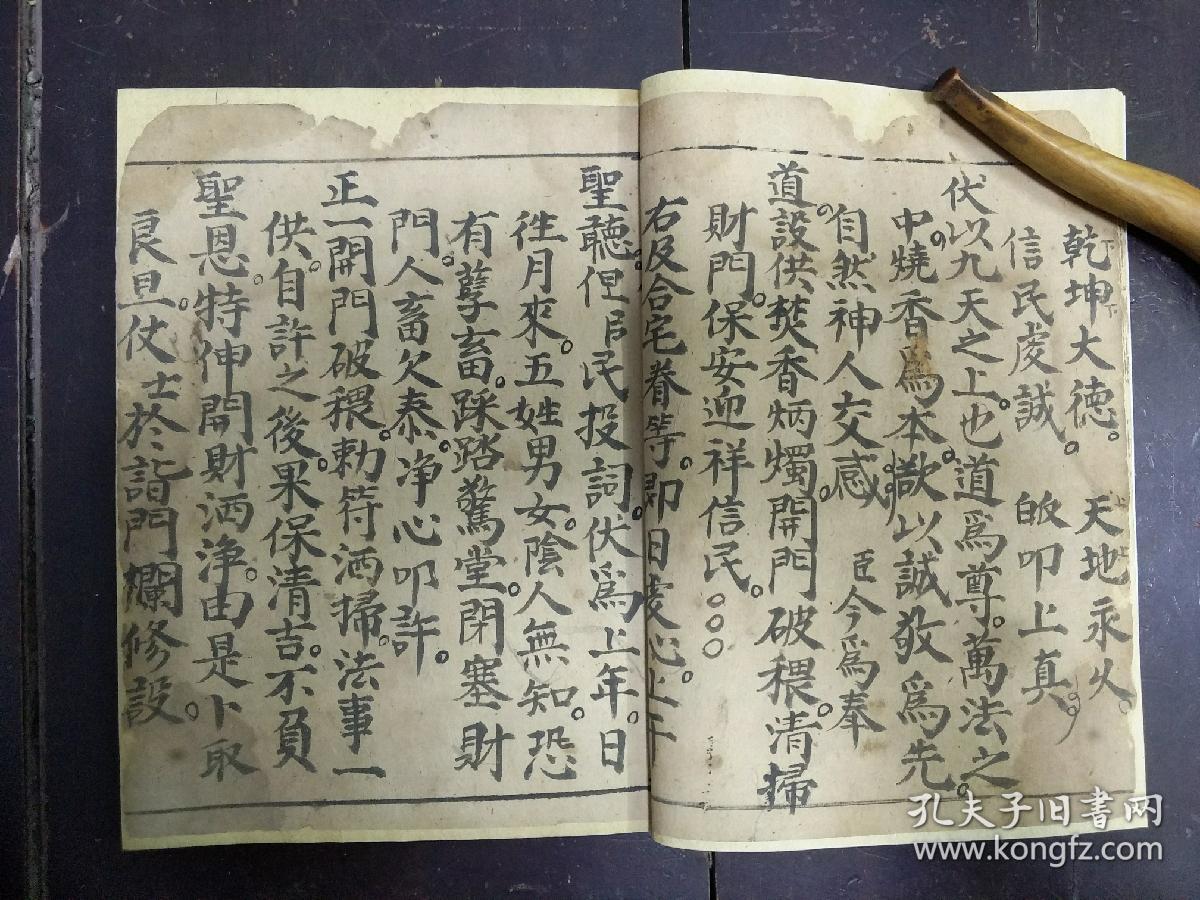 乾坤大德。天地永久。
信民虔誠 皈叩上真
伏以九天之上也。道爲尊。萬法之
中。燒香爲本。欲以誠敬爲先。
自然神人交感。臣今爲奉
道。設供焚香炳燭。開門破穢。清掃
財門。保安迎祥信民。○○○
右及合宅眷等。即日虔心。上干
聖聽。但臣民投詞。伏爲上年。日
徃月來。五姓男女。陰人無知。恐
有孽畜。踩踏驚堂。閉塞財
門。人畜欠泰。净心叩許。
正一開門破穢。勅符洒掃。法事一
供。自許之後。果保清吉。不負
聖恩。特伸開財洒净。由是卜取
良旦。仗士於詣門爛修設。
孔夫子旧书网
www.kongfz.com